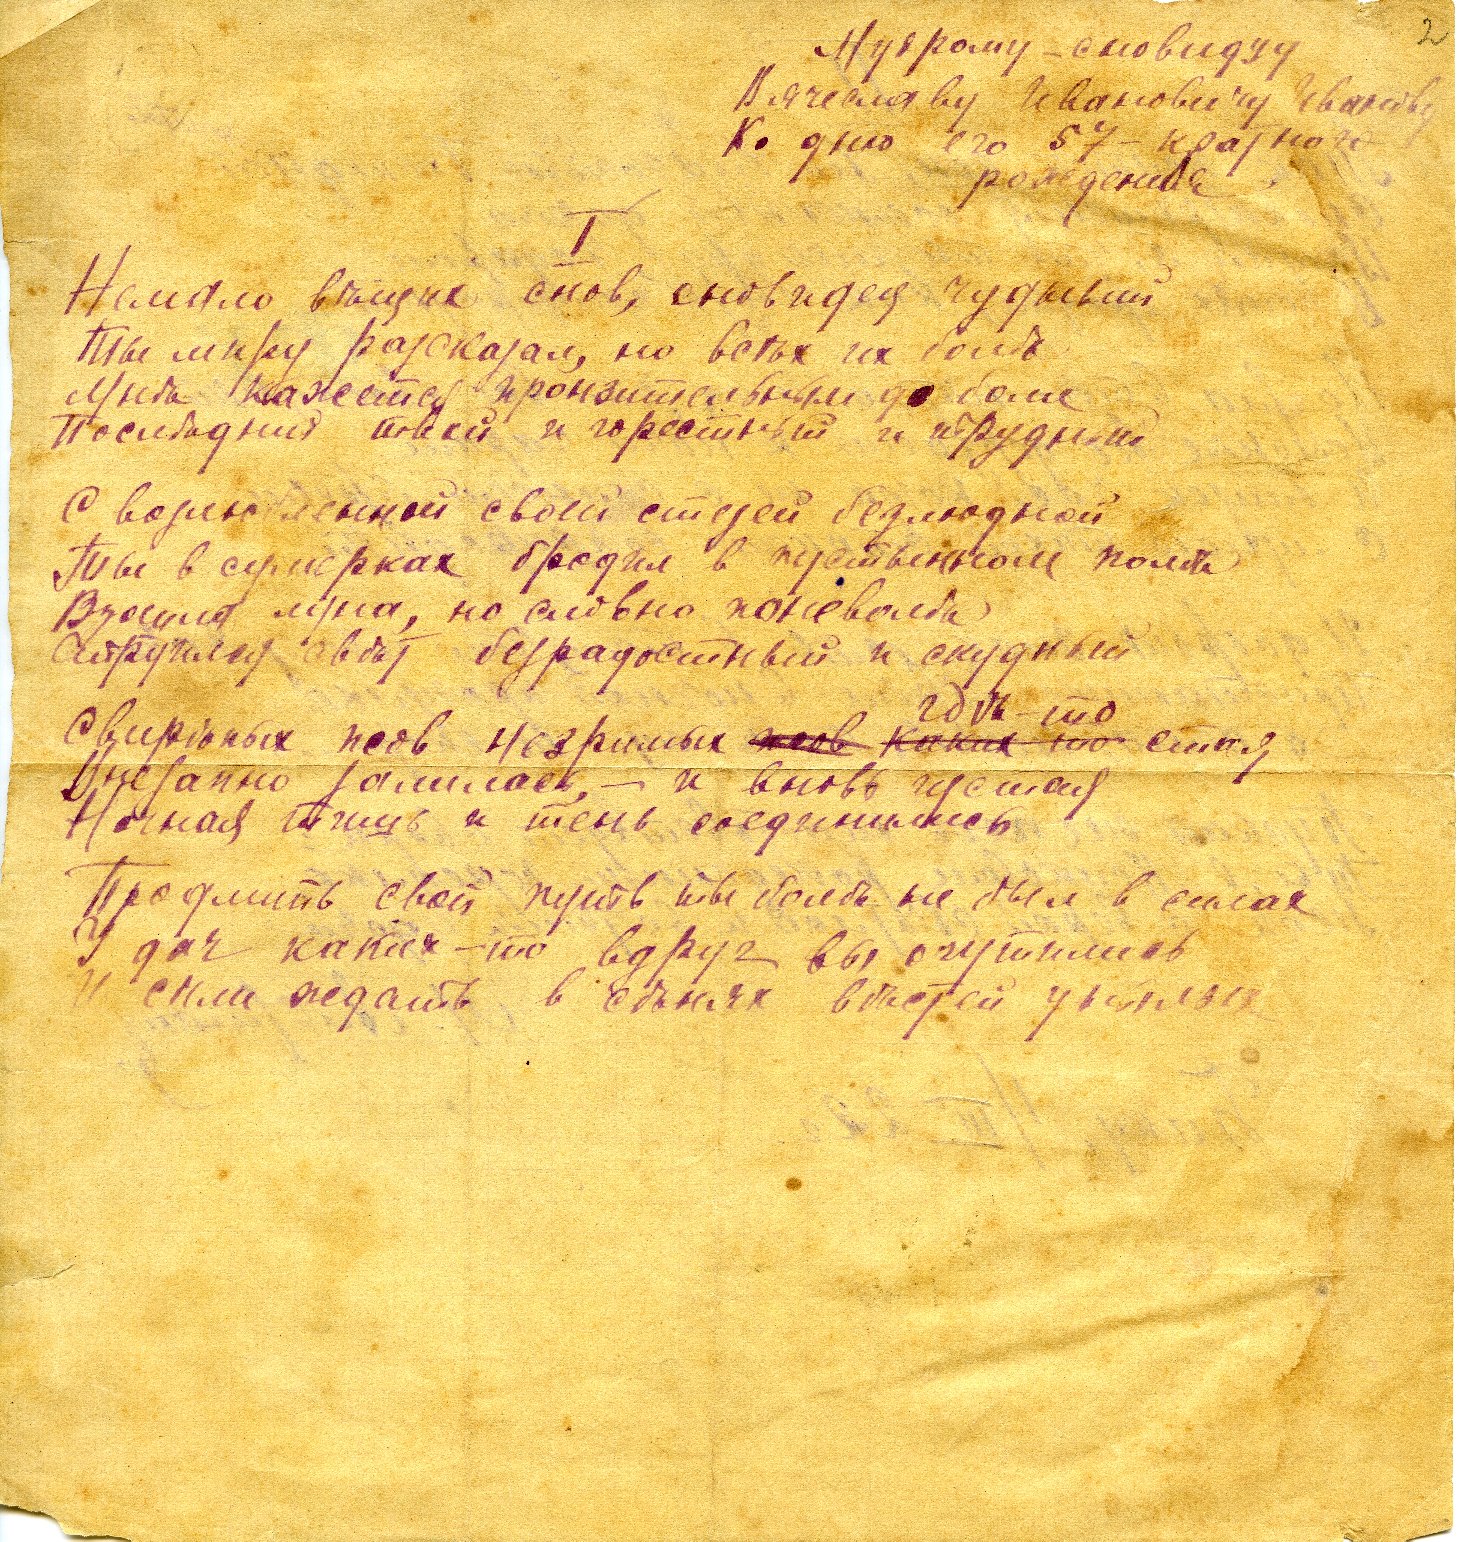 2
Мудрому – сновидцу
Вячеславу Ивановичу Иванову
Ко дню его 57 – кратного
рождения
I
Немало вѣщих снов, сновидец чудный
Ты миру разсказал, но всѣх их болѣ
Мнѣ кажется пронзительным до боли
Послѣдний твой и горестный и трудный
С возлюбленной своей стезей безлюдной
Ты в сумерках бродил в пустынном полѣ
Взошла луна, но словно поневолѣ
Струился свѣт безрадостный и скудный
гдѣ-то
Свирѣпых псов незримых псов каких то стая
Внезапно залилась, – и вновь густая
Ночная тишь и тень соединились
Продлить свой путь ты болѣ не был в силах
У дач каких-то вдруг вы очутились
И сели ждать в сѣнях вѣстей унылых